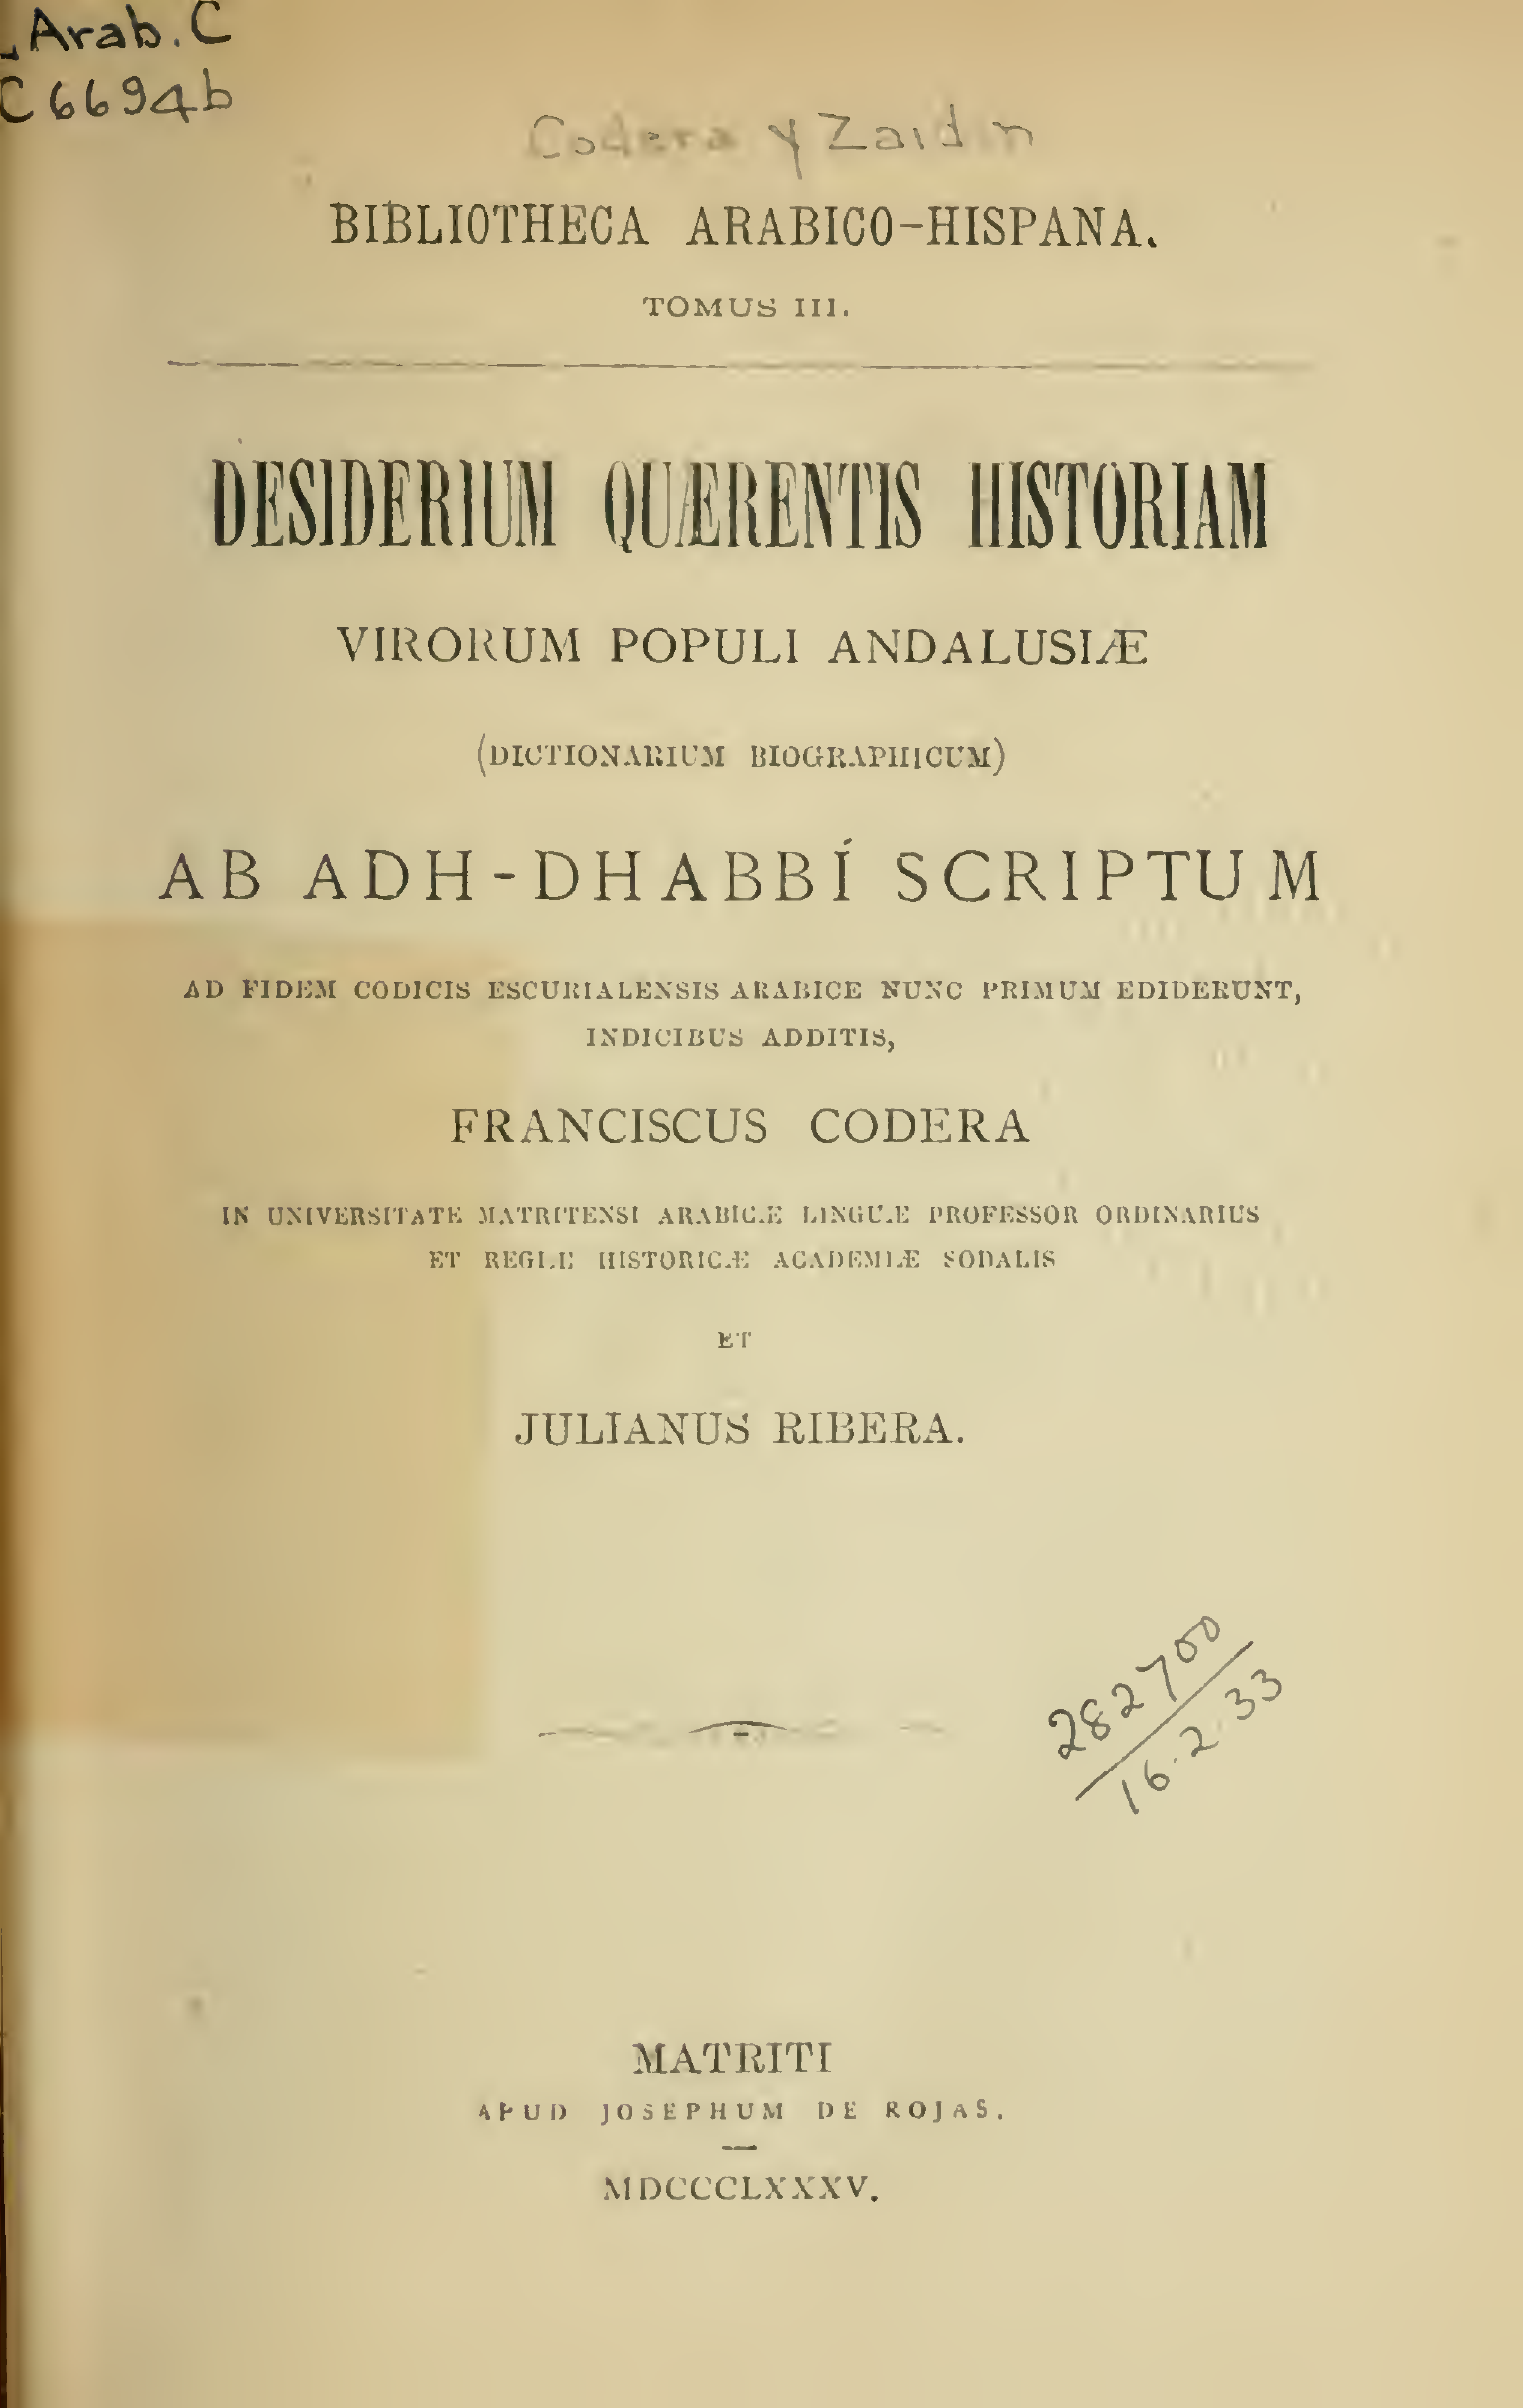 L Arab. C
C6694b
Codera y Zaidin
BIBLIOTHECA ARABICO-HISPANA.
TOMUS III.
DESIDERIUM QUÆRENTIS HISTORIAM
VIRORUM POPULI ANDALUSIÆ
(DICTIONARIUM BIOGRAPHICUM)
AB ADH-DHABBÍ SCRIPTUM
AD FIDEM CODICIS ESCURIALENSIS ARABICE NUNC PRIMUM EDIDERUNT,
INDICIBUS ADDITIS,
FRANCISCUS CODERA
IN UNIVERSITATE MATRITENSI ARABICÆ LINGUÆ PROFESSOR ORDINARIUS
ET REGIÆ HISTORICÆ ACADEMIÆ SODALIS
ET
JULIANUS RIBERA.
282700
16.2.33
MATRITI
APUD JOSEPHUM DE ROJAS.
MDCCCLXXXV.